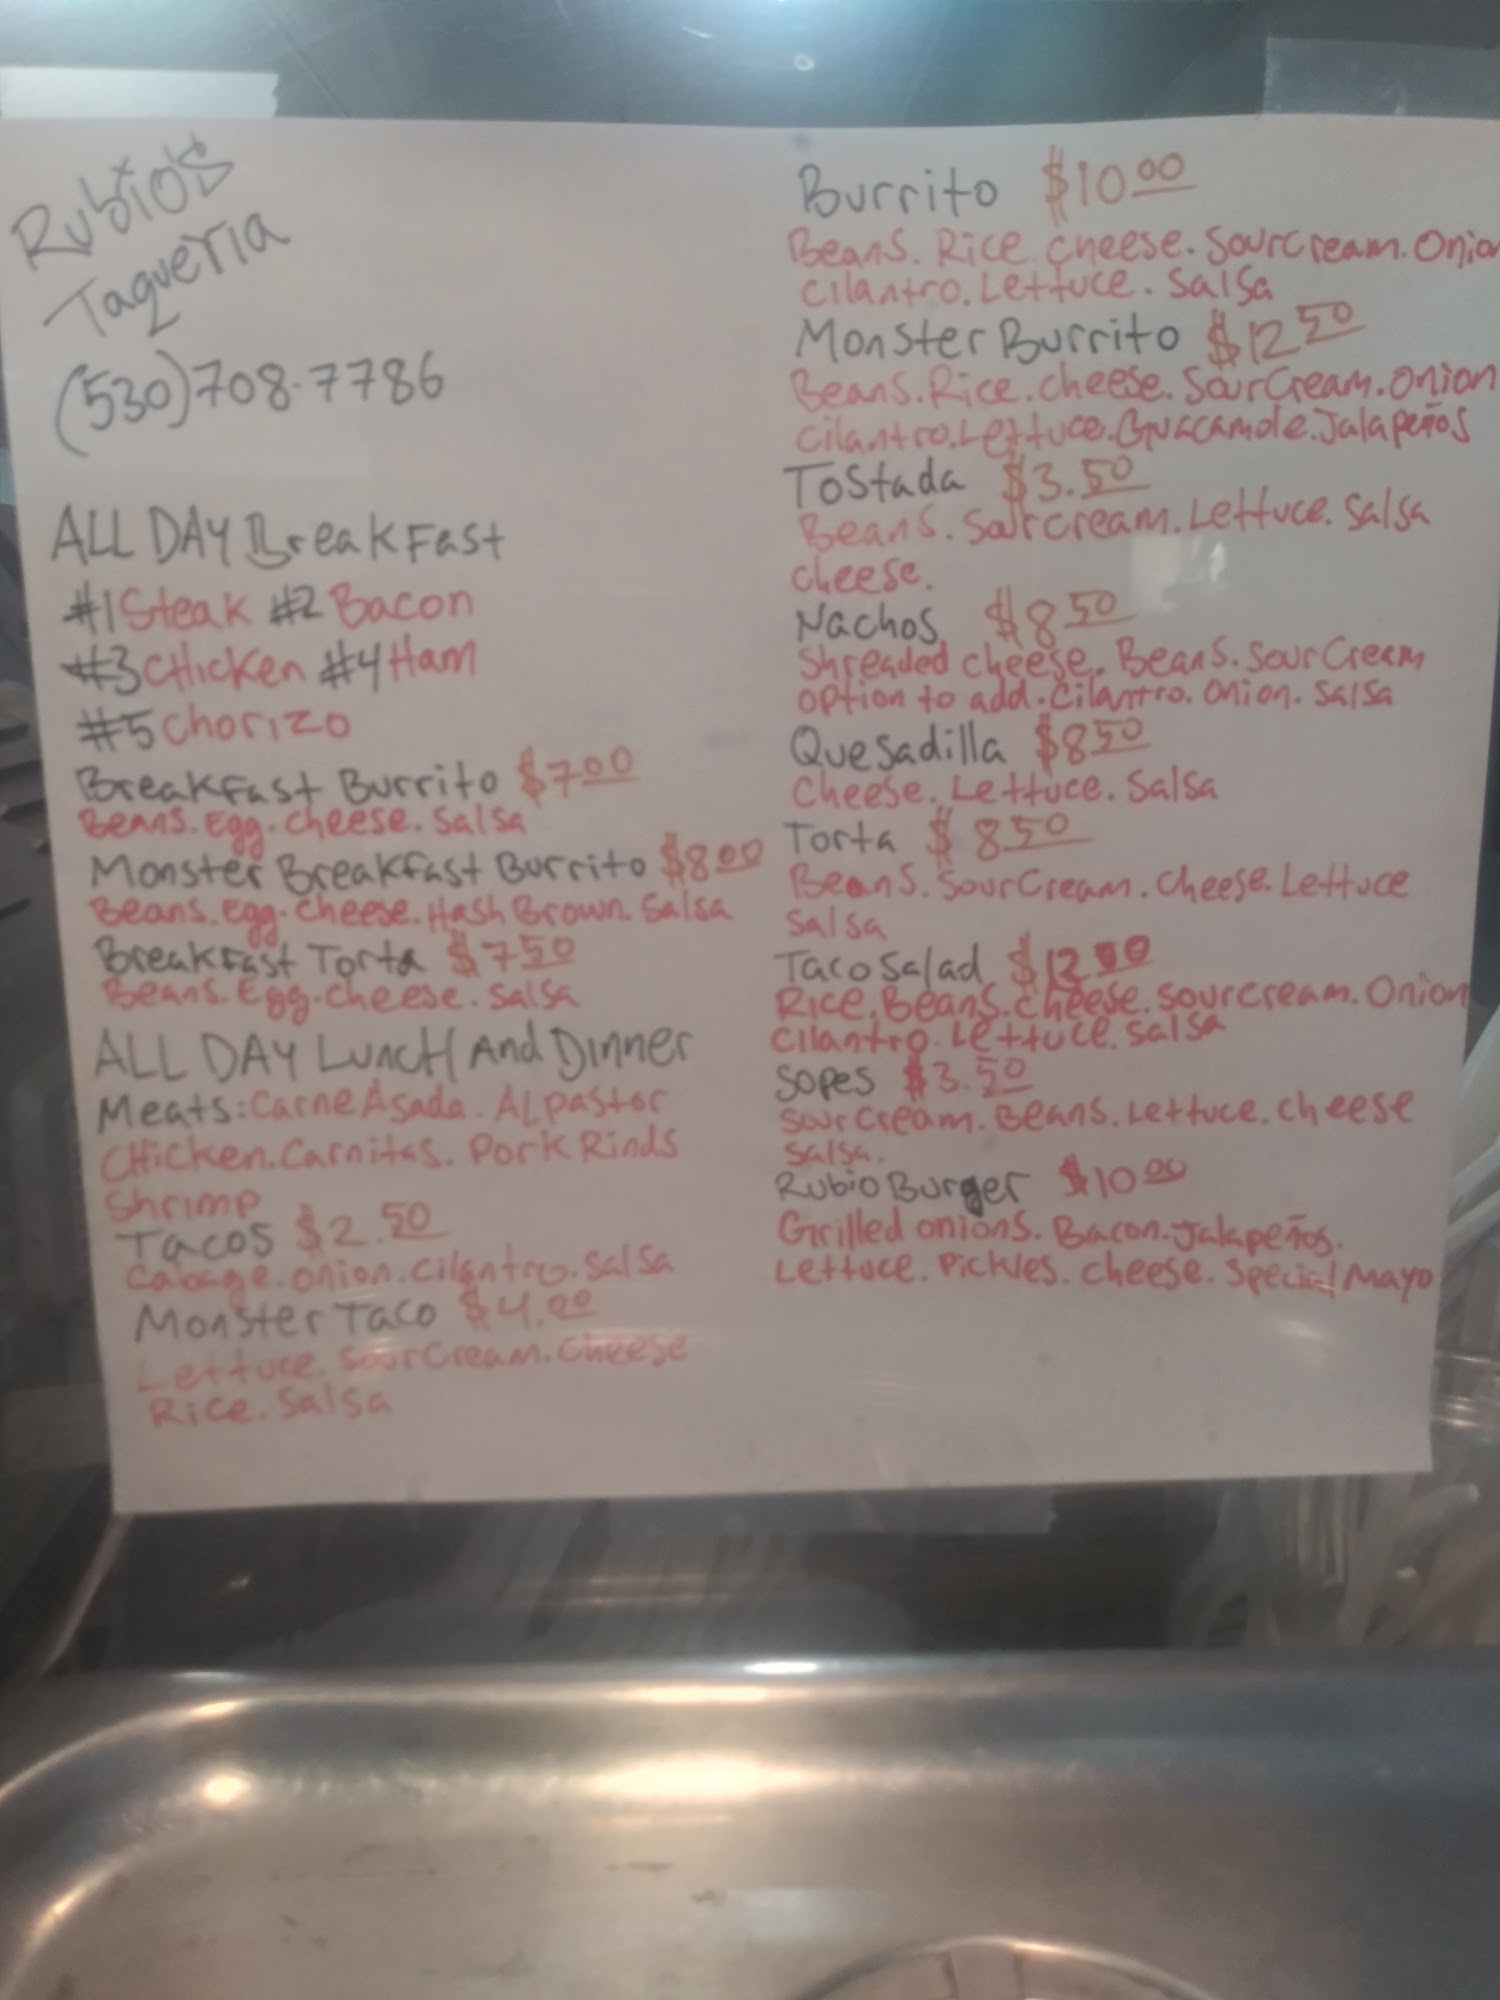 Rubio's
Taqueria
(530)708-7786
ALL DAY BreakFast
#1 Steak #2 Bacon
#3 CHicken #4 Ham
#5 Chorizo
BreakFast Burrito $7.00
Beans. Egg. cheese. Salsa
Monster BreakFast Burrito $8.00
Beans. Egg. cheese. Hash Brown. Salsa
BreakFast Torta $7.50
Beans. Egg. cheese. Salsa
ALL DAY LuncH And Dinner
Meats: Carne Asada. AL Pastor
CHicken. Carnitas. Pork Rinds
Shrimp
Tacos $2.50
Cabage. onion. cilantro. salsa
Monster Taco $4.00
Lettuce. SourCream. Cheese
Rice. Salsa
Burrito $10.00
Beans. Rice. cheese. SourCream. Onion
cilantro. Lettuce. Salsa
Monster Burrito $12.50
Beans. Rice. cheese. SourCream. Onion
cilantro. Lettuce. Guacamole. Jalapeños
Tostada $3.50
Beans. Sourcream. Lettuce. Salsa
cheese.
Nachos $8.50
Shreaded cheese. Beans. SourCream
option to add. Cilantro. onion. Salsa
Quesadilla $8.50
Cheese. Lettuce. Salsa
Torta $8.50
Beans. SourCream. Cheese. Lettuce
Salsa
Taco Salad $12.00
Rice. Beans. cheese. sourcream. Onion
cilantro. Lettuce. salsa
Sopes $3.50
SourCream. Beans. Lettuce. cheese
Salsa.
Rubio Burger $10.00
Grilled onions. Bacon. Jalapeños.
Lettuce. Pickles. cheese. Special Mayo